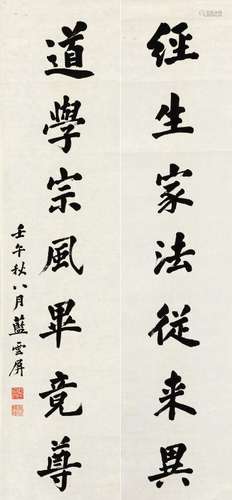 經生家法從来異
道學宗風畢竟尊
壬午秋八月藍雲屏